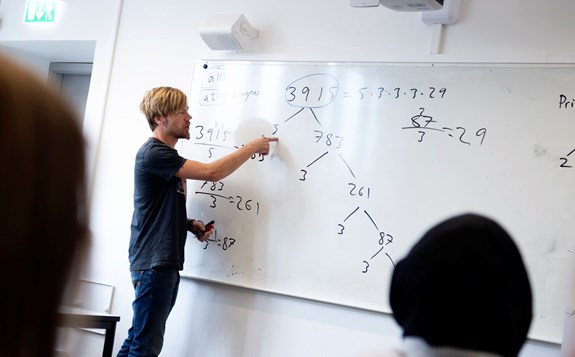 all
3915 = 5·3·3·3·29
Pri
3915
5
5
783
87
3
=29
3
783
3
=261
261
3
87
3
=87
3
2